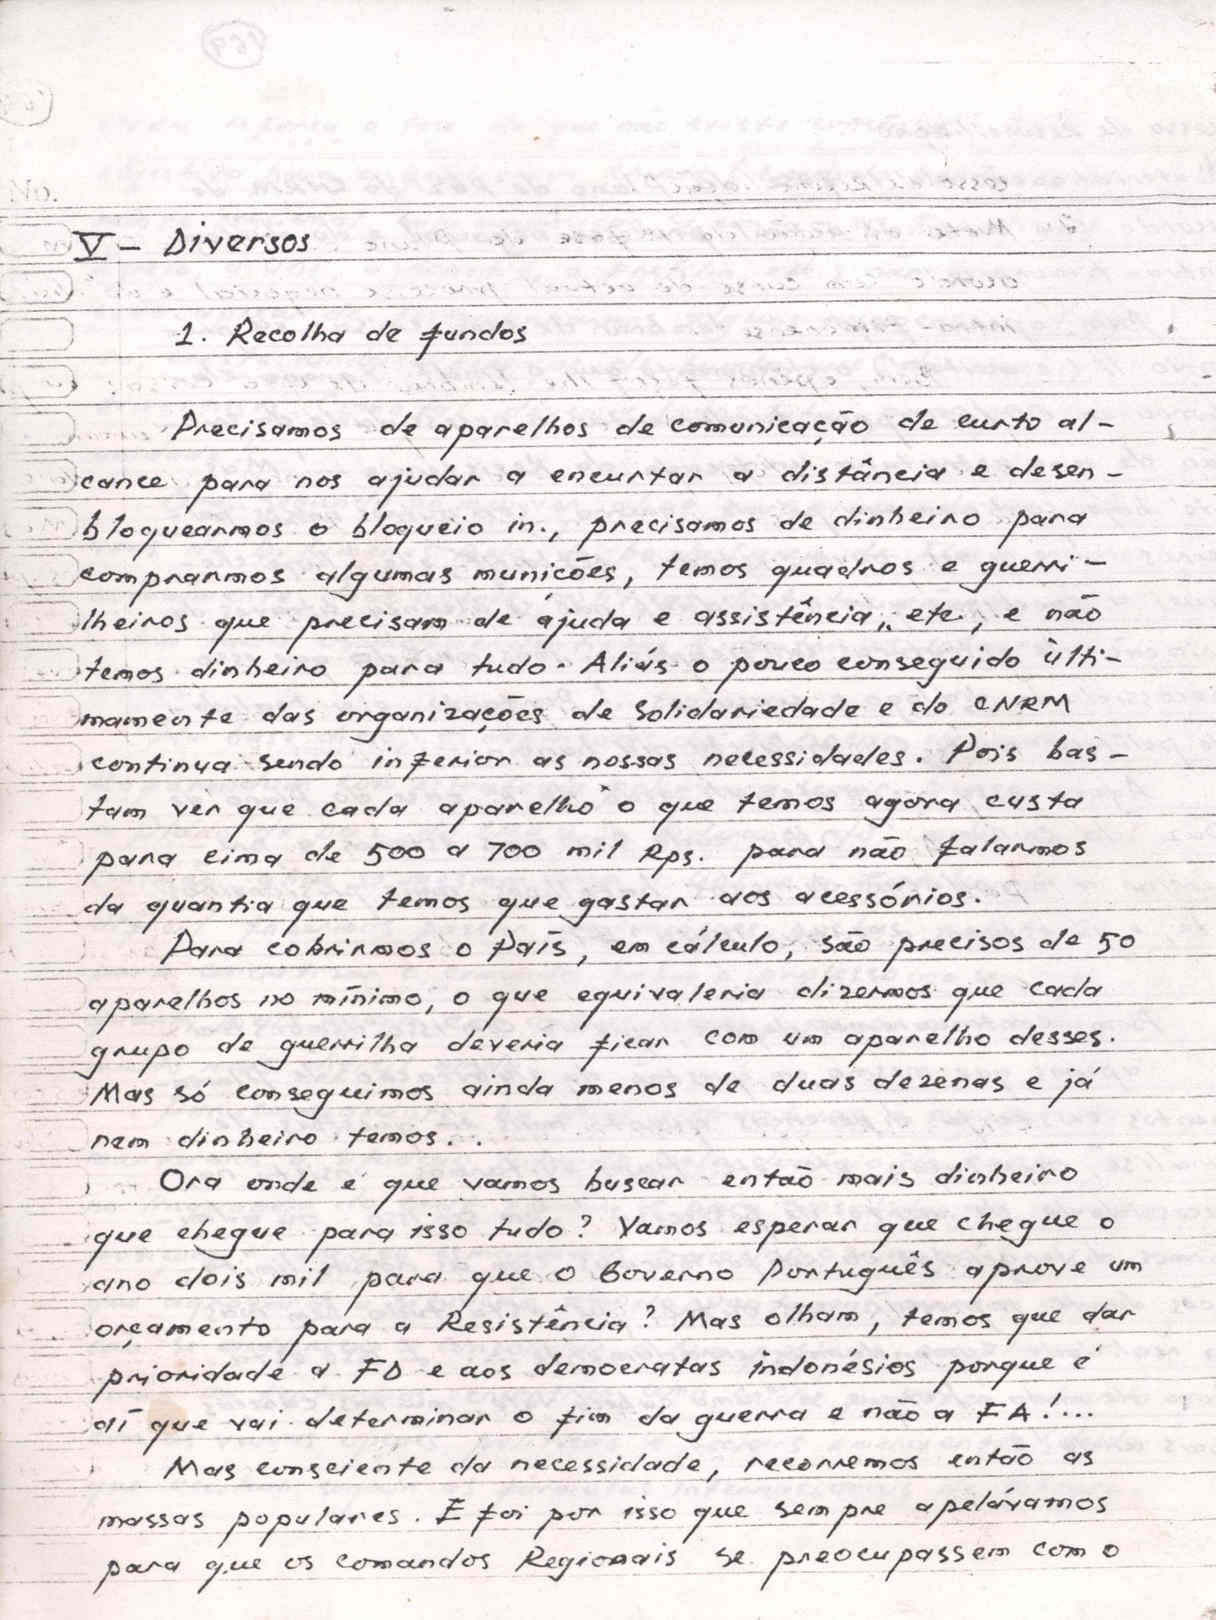 V - Diversos
1. Recolha de fundos
Precisamos de aparelhos de comunicação de curto al-
cance para nos ajudar a encurtar a distância e desen-
bloquearmos o bloqueio in., precisamos de dinheiro para
comprarmos algumas munições, temos quadros e guerri-
lheiros que precisam de ajuda e assistência, etc., e não
temos dinheiro para tudo. Aliás o pouco conseguido ùlti-
mamente das organizações de Solidariedade e do CNRM
continua sendo inferior as nossas necessidades. Pois bas-
tam ver que cada aparelho o que temos agora custa
para cima de 500 a 700 mil Rps. para não falarmos
da quantia que temos que gastar aos acessórios.
Para cobrirmos o País, em cálculo, são precisos de 50
aparelhos no mínimo, o que equivaleria dizermos que cada
grupo de guerrilha deveria ficar com um aparelho desses.
Mas só conseguimos ainda menos de duas dezenas e já
nem dinheiro temos...
Ora onde é que vamos buscar então mais dinheiro
que chegue para isso tudo? Vamos esperar que chegue o
ano dois mil para que o Governo Português aprove um
orçamento para a Resistência? Mas olham, temos que dar
prioridade a FD e aos democratas indonésios porque é
aí que vai determinar o fim da guerra e não a FA!...
Mas consciente da necessidade, recorremos então as
massas populares. E foi por isso que sempre apelávamos
para que os comandos Regionais se preocupassem com o